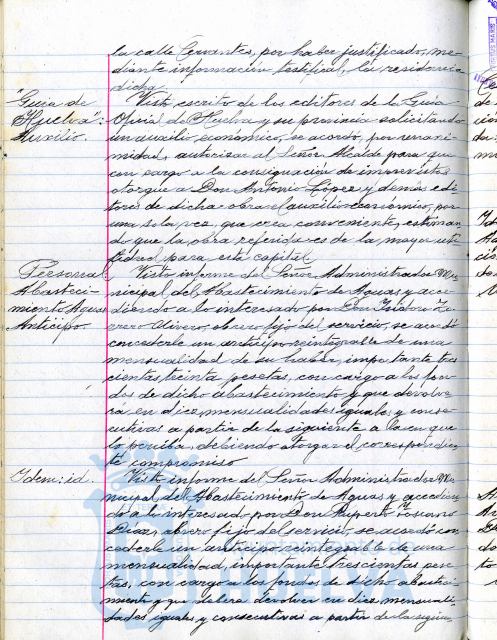 la calle Cervantes, por haber justificado, me-
diante información testifical, la residencia
dicha.
"Guia de
Huelva":
Auxilio.
Visto escrito de los editores de la Guia
Oficial de Huelva y su provincia solicitando
un auxilio económico, se acordó, por unani-
midad, autorizar al Señor Alcalde para que
con cargo a la consignación de imprevistos
otorgue a Don Antonio López y demás edi-
tores de dicha obra el auxilio económico, por
una sola vez, que crea conveniente, estiman-
do que la obra referida es de la mayor uti-
lidad para esta capital.
Personal
Abasteci-
miento Aguas
Anticipo.
Visto informe del Señor Administrador Mu-
nicipal del Abastecimiento de Aguas y acce-
diendo a lo interesado por Don Isidoro
Olivero, obrero fijo del servicio, se acordó
concederle un anticipo reintegrable de una
mensualidad de su haber, importante tres-
cientas treinta pesetas, con cargo a los fon-
dos de dicho abastecimiento y que devolve-
rá en diez mensualidades iguales y conse-
cutivas a partir de la siguiente a la en que
lo perciba, debiendo otorgar el correspondien-
te compromiso
Idem: id.
Visto informe del Señor Administrador Mu-
nicipal del Abastecimiento de Aguas y accedien-
do a lo interesado por Don Ruperto
Díaz, obrero fijo del servicio, se acordó con-
cederle un anticipo reintegrable de una
mensualidad, importante trescientas pese-
tas, con cargo a los fondos de dicho abasteci-
miento y que deberá devolver en diez mensuali-
dades iguales y consecutivas a partir de la siguien-